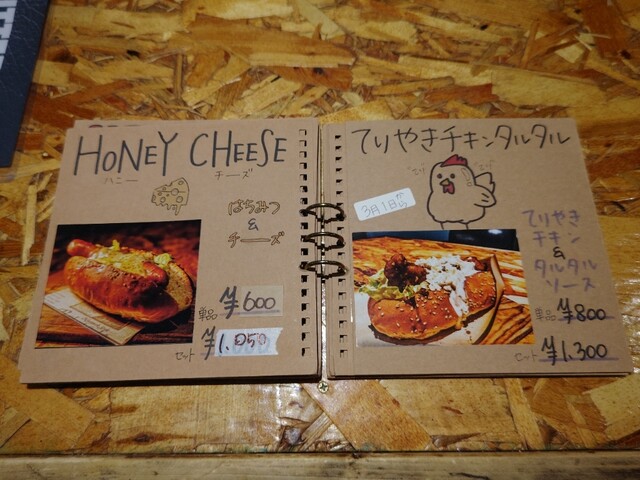 HONEY CHEESE
ハニー チーズ
はちみつ
&
チーズ
単品 ¥600
セット ¥1,050
てりやきチキンタルタル
3月1日から
てりやき
チキン
&
タルタル
ソース
単品 ¥800
セット ¥1,300